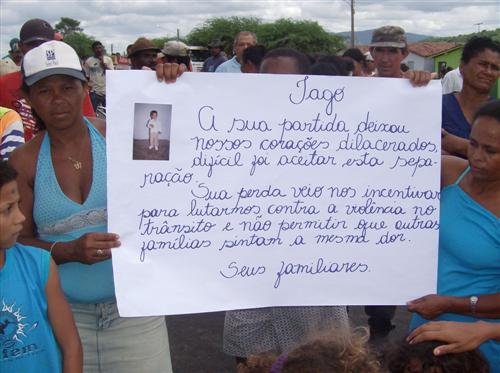 Iago
A sua partida deixou
nossos corações dilacerados,
difícil foi aceitar esta sepa-
ração.
Sua perda veio nos incentivar
para lutarmos contra a violência no
trânsito e não permitir que outras
famílias sintam a mesma dor.
Seus familiares.